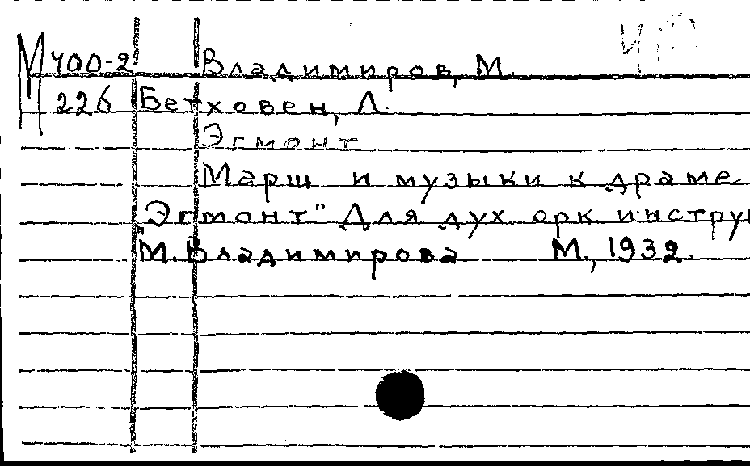 М 400-2 Владимиров, М.
226 Бетховен, Л.
Эгмонт
Марш и музыки к драме
"Эгмонт" Для дух орк инстру
М. Владимирова М., 1932.